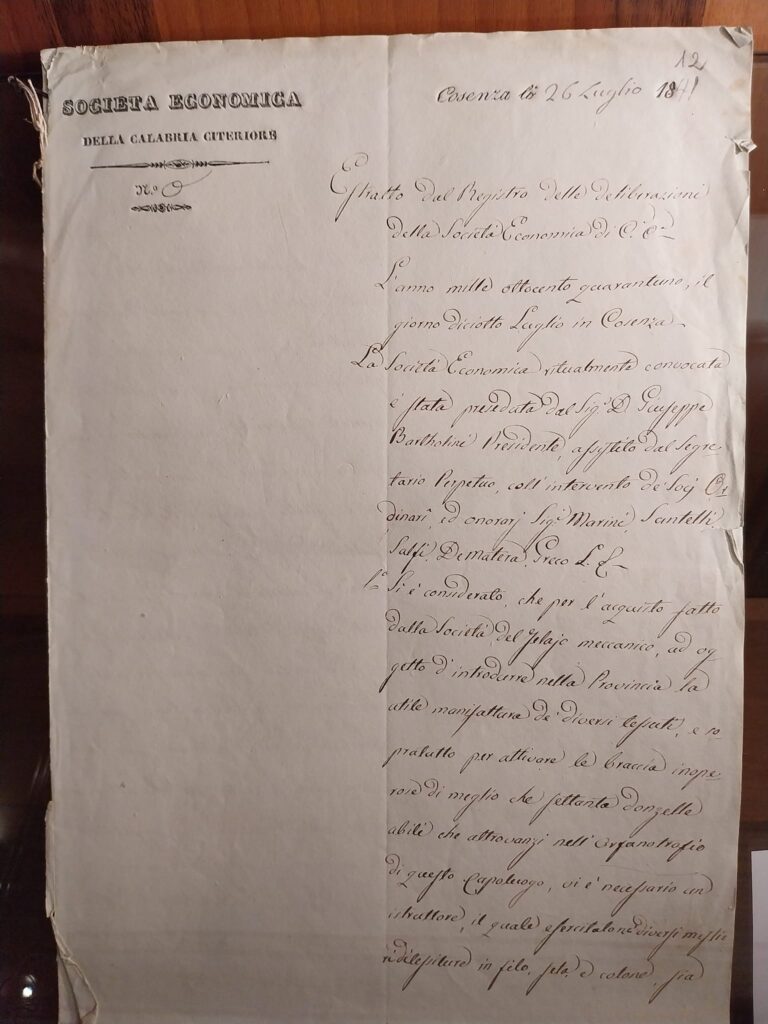 12
SOCIETA ECONOMICA
DELLA CALABRIA CITERIORE
N.º
Cosenza li 26 Luglio 1841
Estratto dal Registro delle deliberazioni
della Società Economica di C. C.ª
L'anno mille ottocento quarantuno, il
giorno diciotto Luglio in Cosenza
La Società Economica ritualmente convocata
è stata preseduta dal Sig.r D. Giuseppe
Bartholini Presidente, assistito dal Segre-
tario Perpetuo, coll'intervento de' Socj Or-
dinarî, ed onorarj Sig.i Marini, Scintelli
Salfi, Dematera, Greco L.
1.º Si è considerato, che per l'acquisto fatto
dalla Società, del telajo meccanico, ad og-
getto d'introdurre nella Provincia la
utile manifattura de' diversi tessuti, e so-
pratutto per attivare le braccia inope-
rose di meglio che settanta donzelle
abili che altrovanzi nell'Orfanotrofio
di questo Capoluogo, vi è necessario un
istruttore, il quale esercitato ne' diversi mestie-
ri di tessiture in filo, seta, e cotone, sia